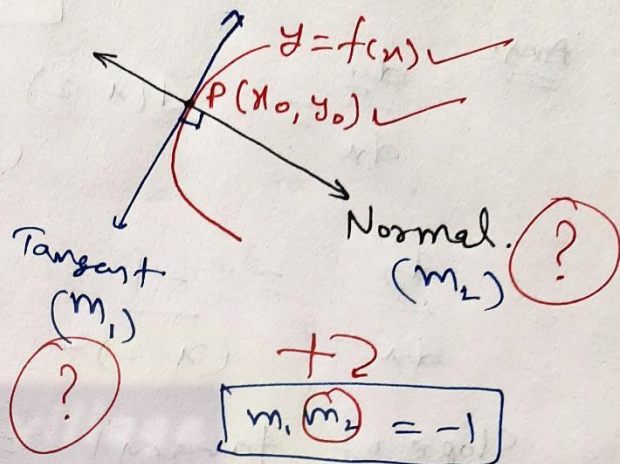 y = f(x)
P(x₀, y₀)
Normal.
(m₂)
?
Tangent
(m₁)
?
+2
m₁ m₂ = -1